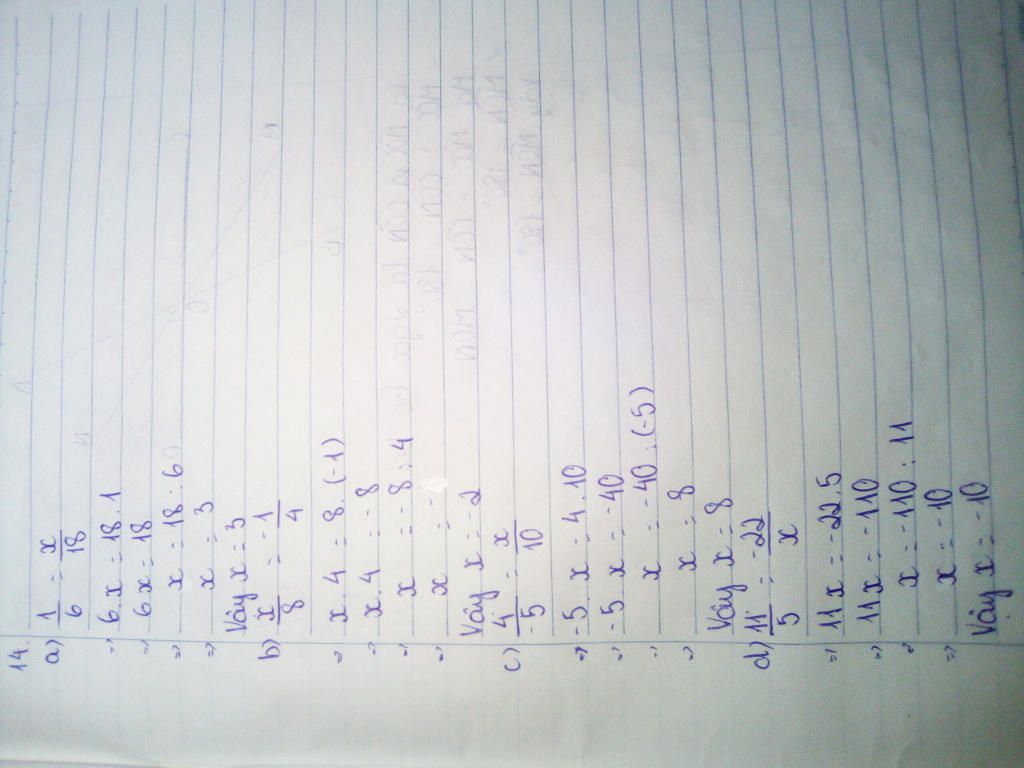 14.
a) 1/6 = x/18
=> 6.x = 18.1
=> 6x = 18
=> x = 18:6
=> x = 3
Vậy x = 3
b) x/8 = -1/4
=> x.4 = 8.(-1)
=> x.4 = -8
=> x = -8:4
=> x = -
Vậy x = -2
c) 4/-5 = x/10
=> -5.x = 4.10
=> -5.x = -40
=> x = -40:(-5)
=> x = 8
Vậy x = 8
d) 11/5 = -22/x
=> 11x = -22.5
=> 11x = -110
=> x = -110:11
=> x = -10
Vậy x = -10